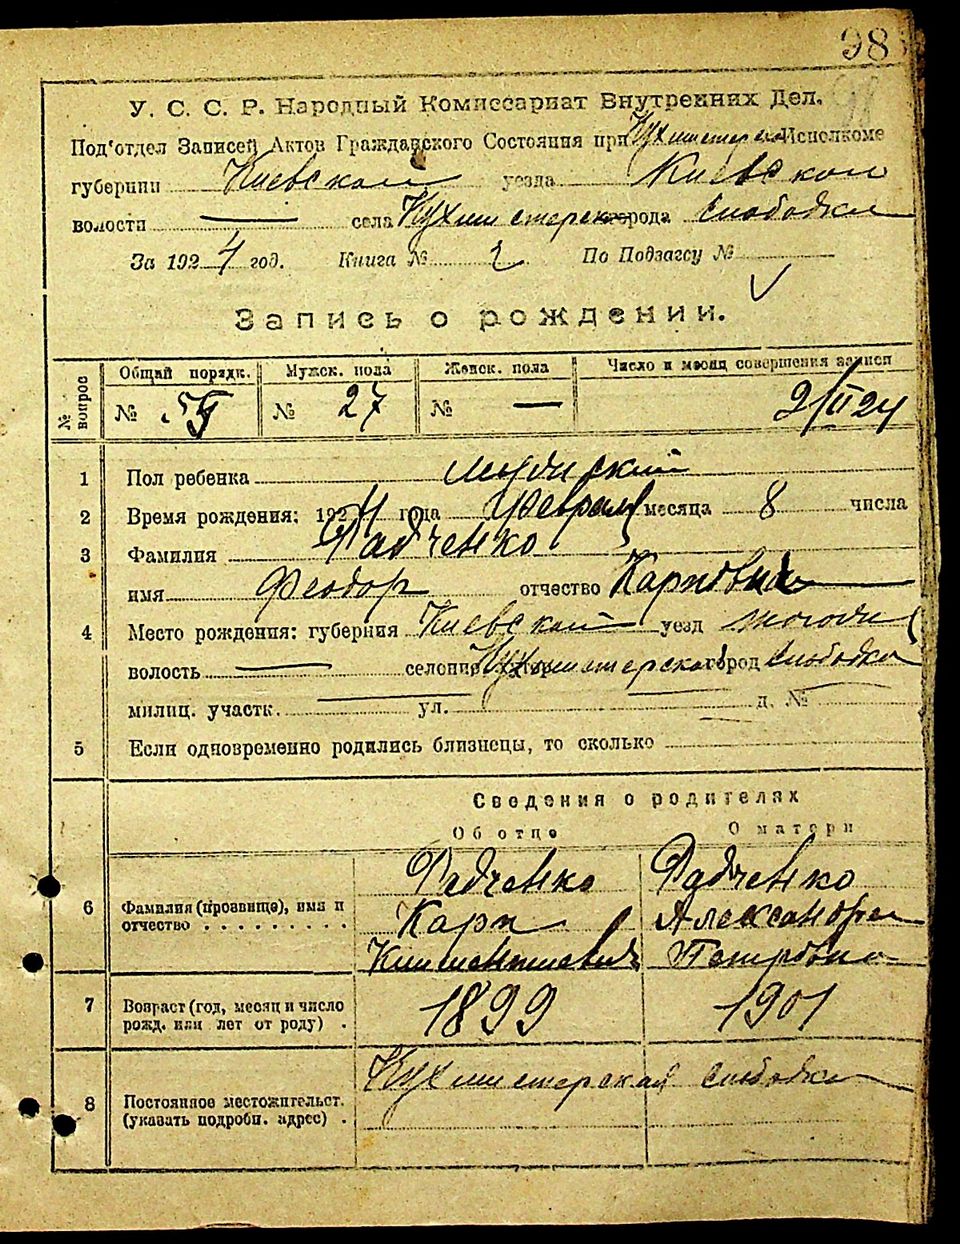 98
У. С. С. Р. Народный Комиссариат Внутренних Дел.
Под'отдел Записей Актов Гражданского Состояния при Кухмистерск Исполкоме
губернии Киевской уезда Киевской
волости — села Кухмистерск города слободки
За 1924 год. Книга № 2 По Подзагсу №
Запись о рождении.
№ вопрос Общий порядк. Мужск. пола Женск. пола Число и месяц совершения записи
№ № 27 № — 2/II 24
1 Пол ребенка мужский
2 Время рождения: 1924 года Февраля месяца 8 числа
3 Фамилия Радченко
имя Феодор отчество Карпович
4 Место рождения: губерния Киевской уезд
волость — селение Кухмистерская город слободка
милиц. участк. ул. д. №
5 Если одновременно родились близнецы, то сколько
Сведения о родителях
Об отце О матери
Радченко Радченко
6 Фамилия (прозвище), имя и отчество Карп Александра
Климентиевич Петровна
7 Возраст (год, месяц и число рожд. или лет от роду) . 1899 1901
Кухмистерская слободка
8 Постоянное местожительст. (указать подробн. адрес) .